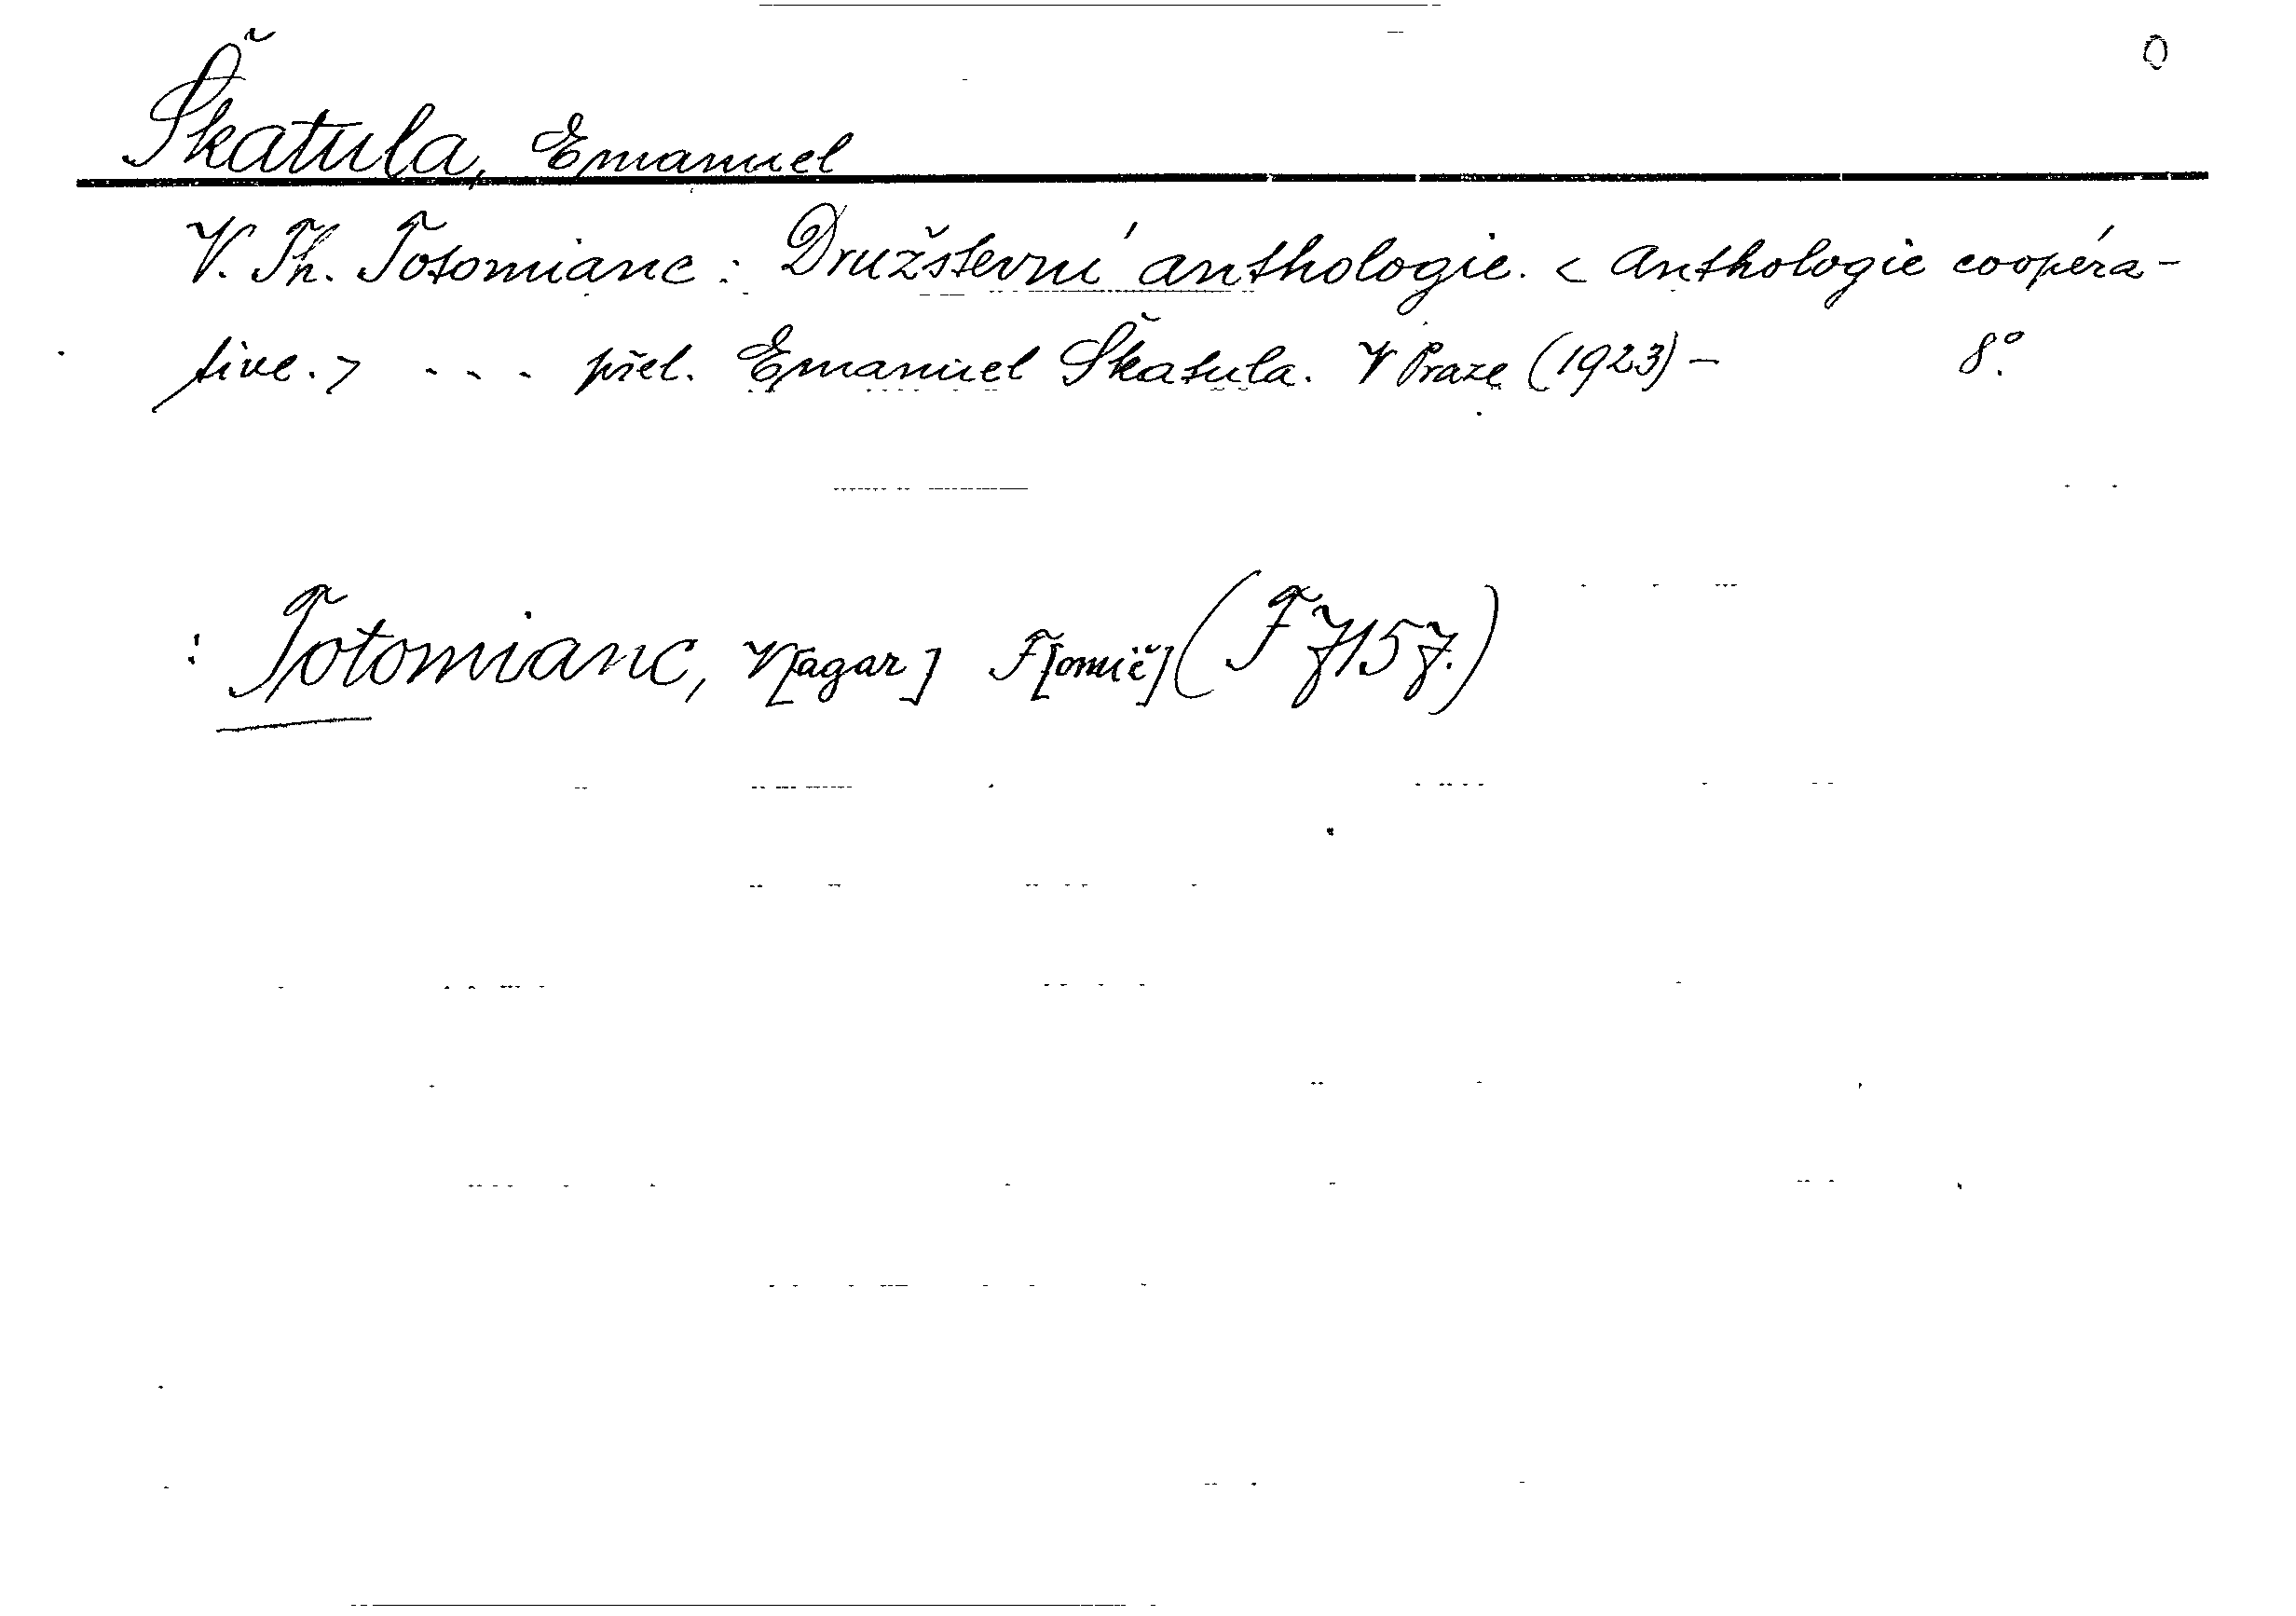 Škatula, Emanuel
V. Th. Totomianc: Družstevní anthologie. < Anthologie coopéra-
tive. > . . . přel. Emanuel Škatula. V Praze (1923) - 8°.
: Totomianc, V[agar] F[omič] (F 7157.)